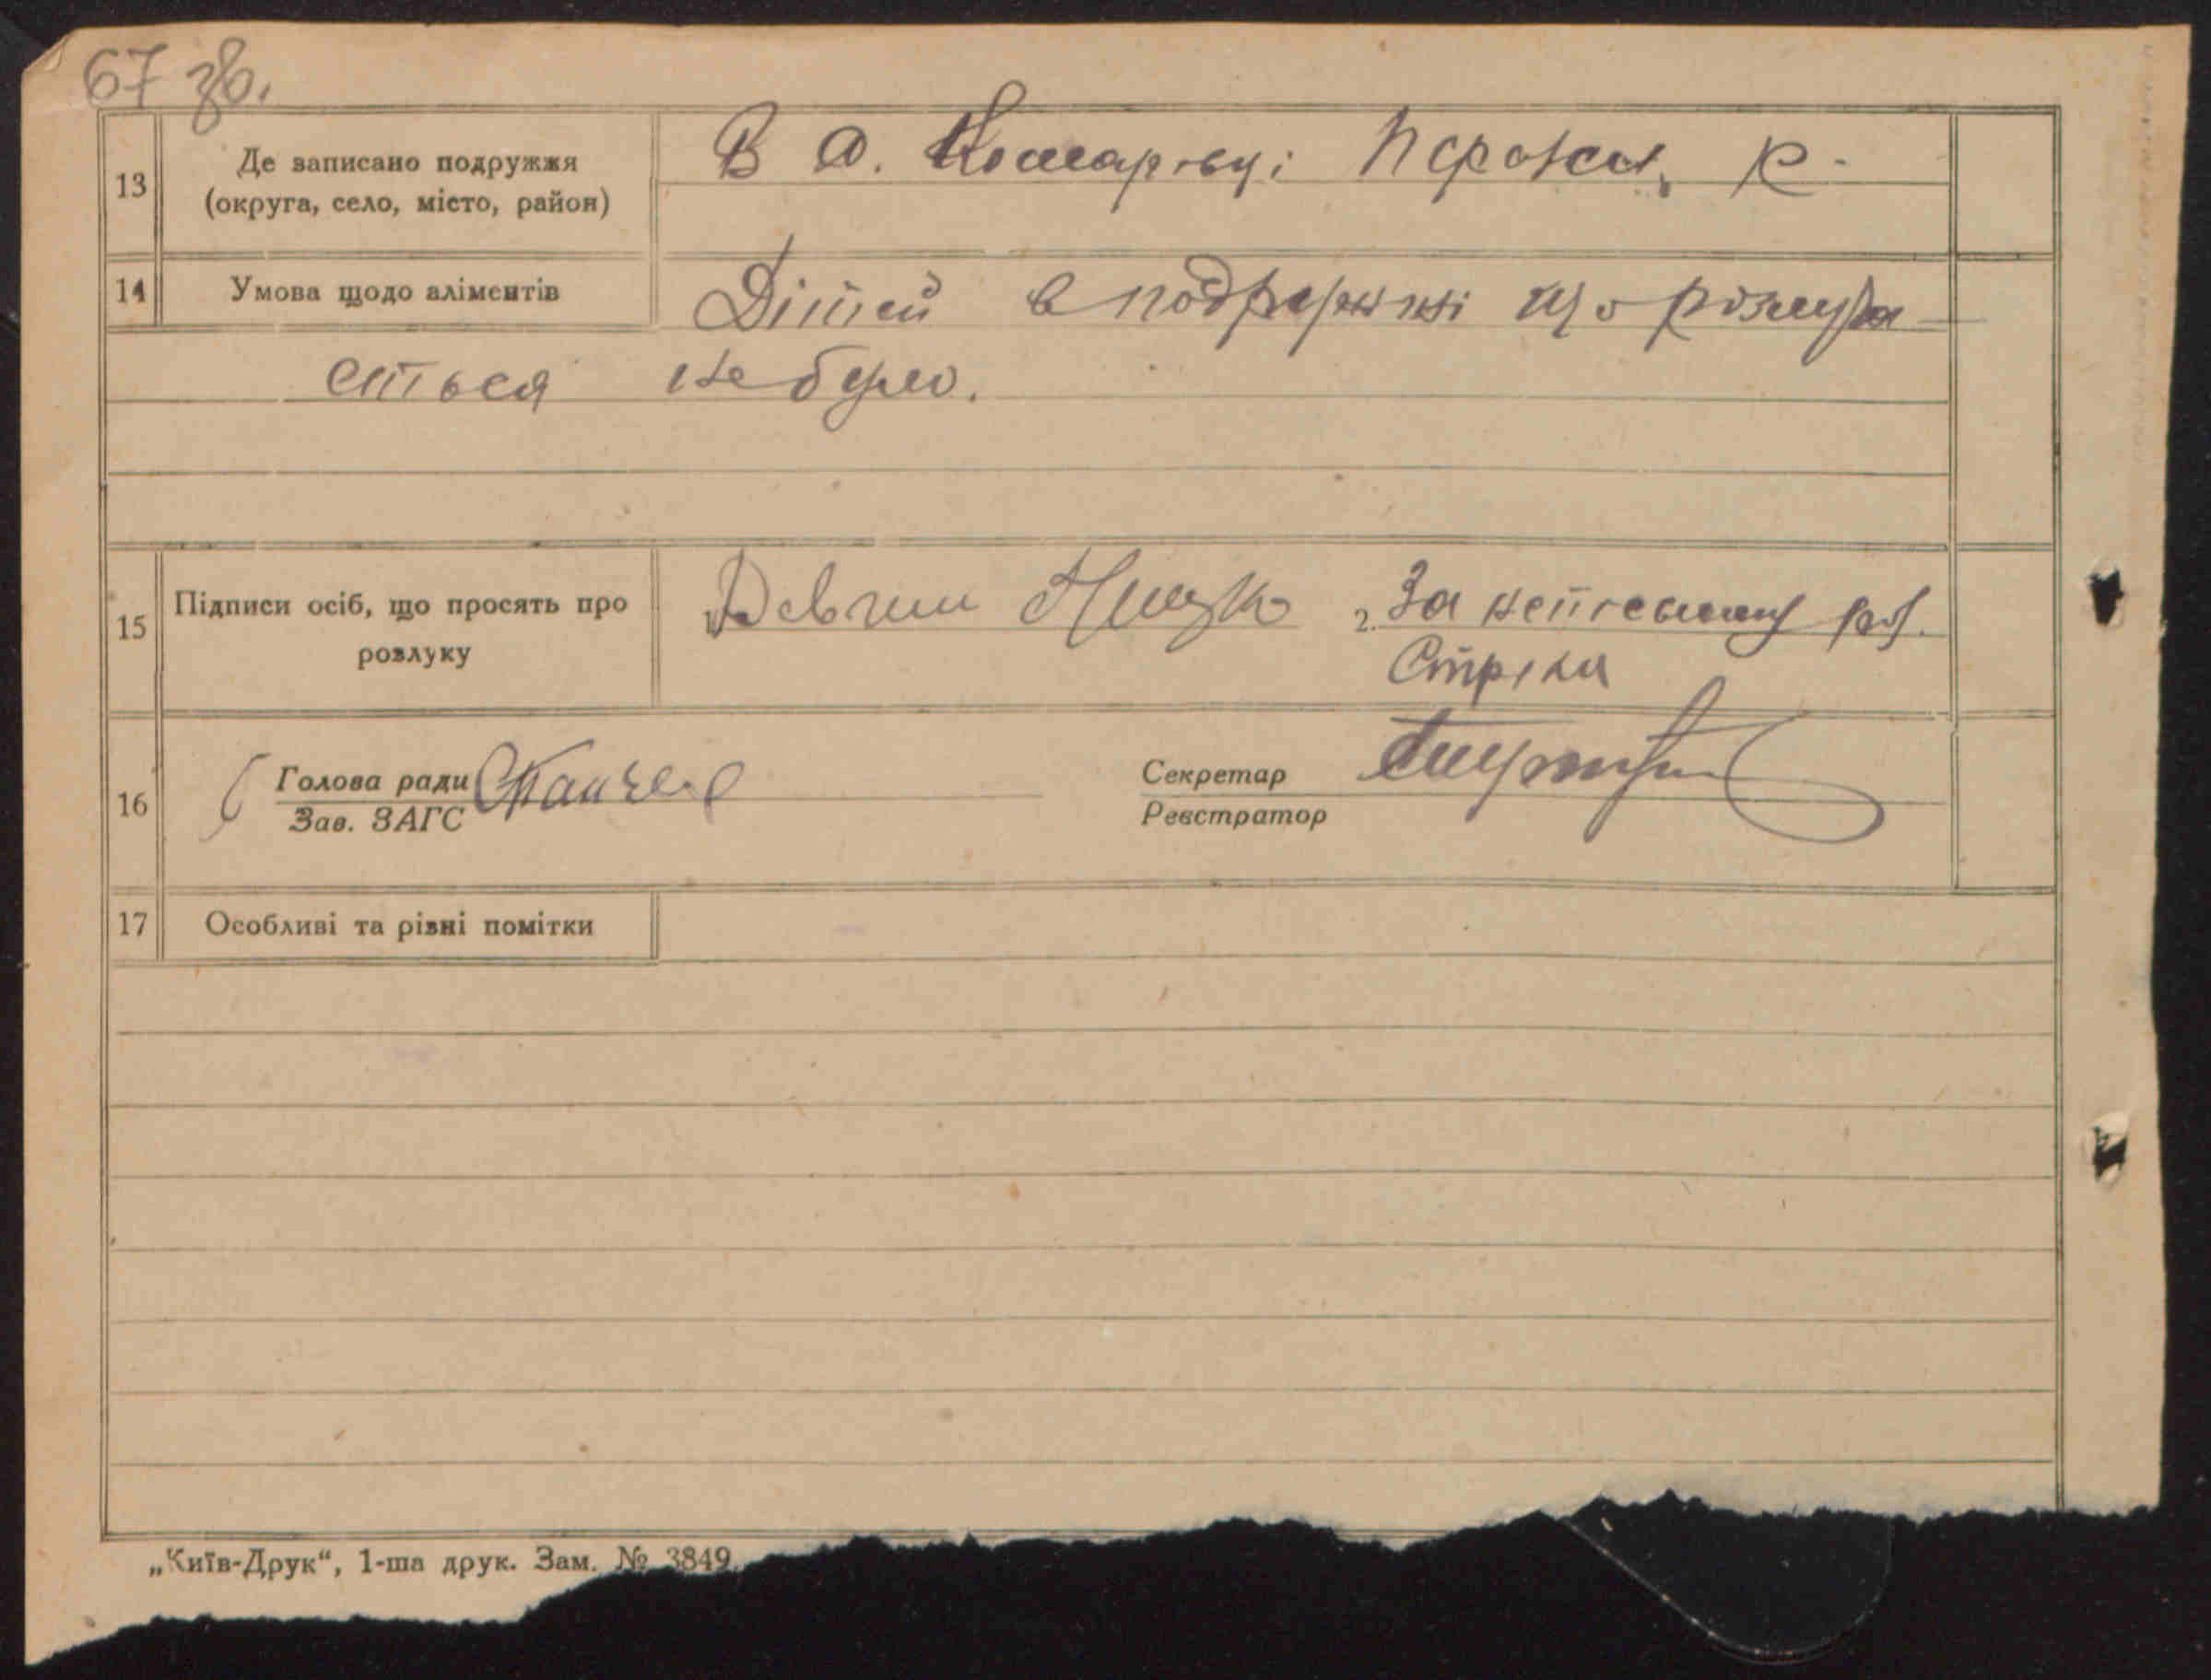 67 зв.
13 Де записано подружжя (округа, село, місто, район)
В с. Комарівці
р.
14 Умова щодо аліментів
Дітей в подружжі що розлуча
ється не було.
15 Підписи осіб, що просять про розлуку
2. За неписьмену
16 Голова ради
Зав. ЗАГС
Секретар
Реєстратор
17 Особливі та різні помітки
„Київ-Друк“, 1-ша друк. Зам. № 3849.